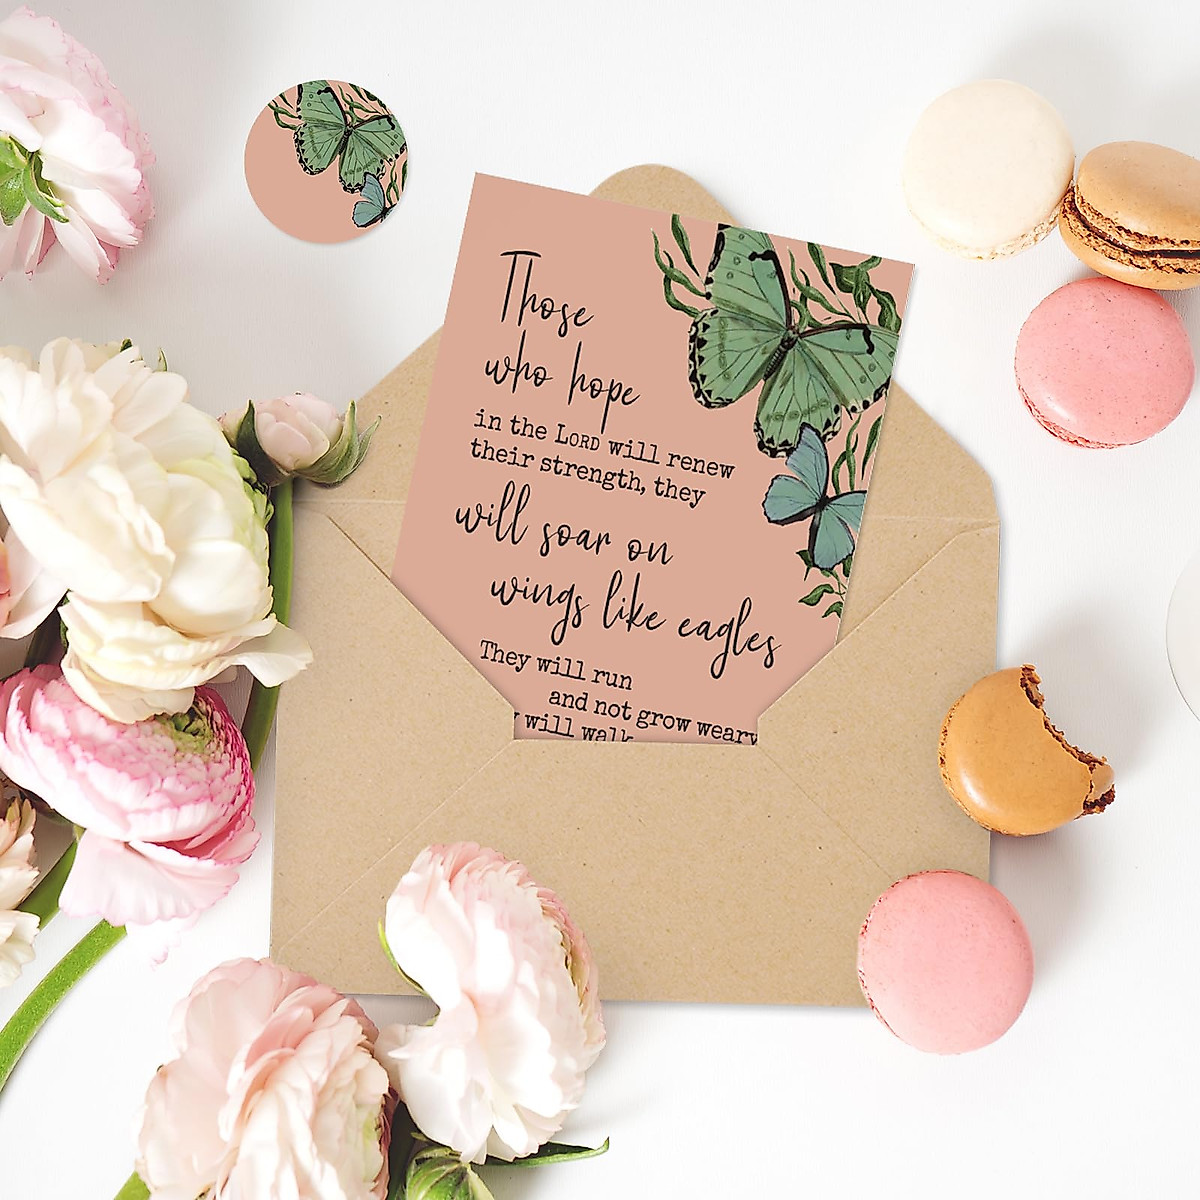 Those
who hope
in the LORD will renew
their strength, they
will soar on
wings like eagles
They will run
and not grow weary
will walk